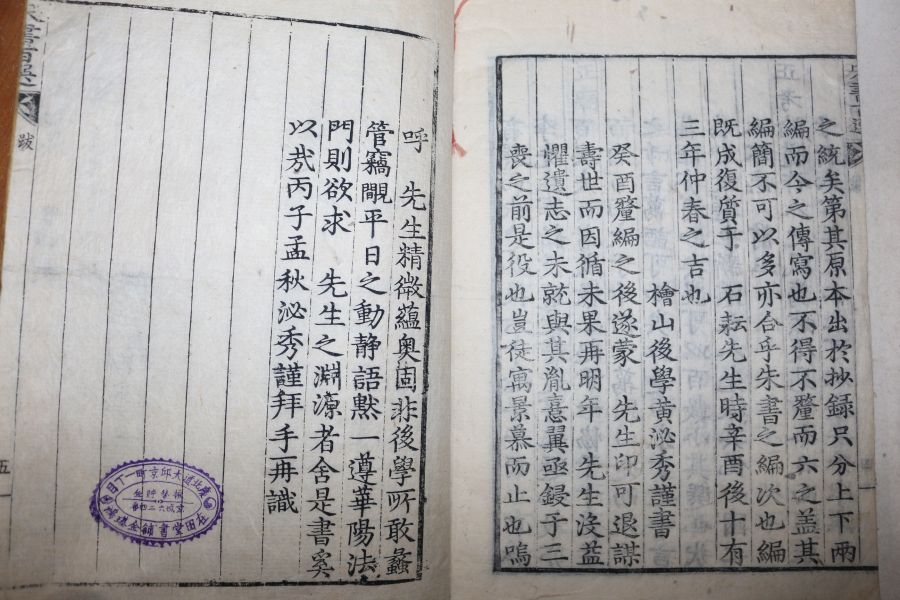 之統矣第其原本出於抄録只分上下兩
編而今之傳寫也不得不釐而六之盖其
編簡不可以多亦合乎朱書之編次也編
既成復質于 石耘先生時辛酉後十有
三年仲春之吉也
檜山後學黃泌秀謹書
癸酉釐編之後遂蒙 先生印可退謀
壽世而因循未果再明年 先生沒益
懼遺志之未就與其胤憙翼亟鋟于三
喪之前是役也豈徒寓景慕而止也嗚
呼 先生精微蘊奥固非後學所敢蠡
管竊覸平日之動静語黙一遵華陽法
門則欲求 先生之淵源者舍是書奚
以㢤丙子孟秋泌秀謹拜手再識
跋
五